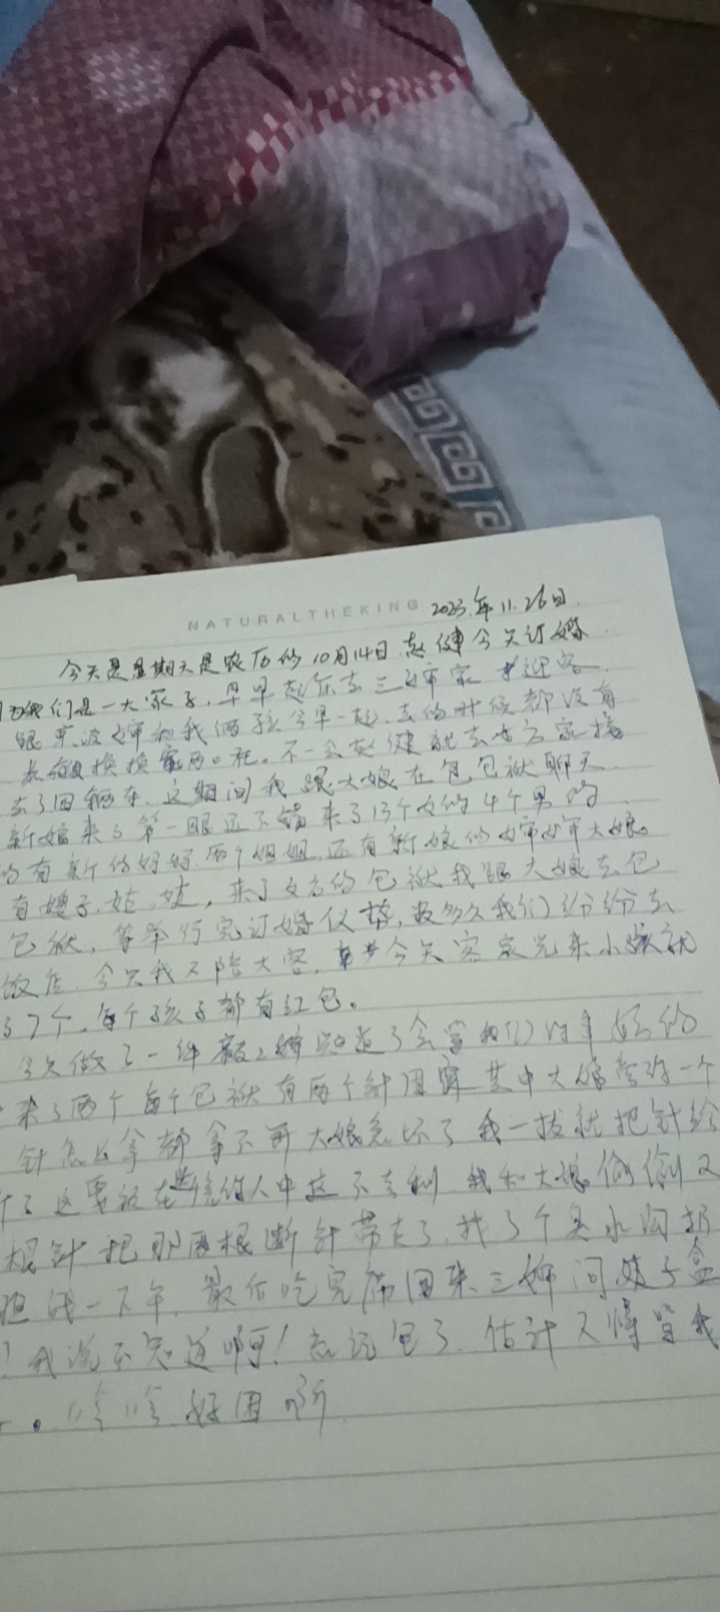 NATURALTHEKING 2023.年11.26日
今天是星期天是农历的10月14日 赵健今天订婚
我们是一大家子，早早起床去三婶家迎客
跟 波婶和我俩孩今早一起，去的时候都没有
换换 不一会赵健就去女方家接
去了四辆车，这期间我跟大娘在包包袱聊天
新娘来了第一眼还不错来了13个女的4个男的
有新的妈妈，两个姐姐，还有新娘的婶婶大娘
有嫂子，姑姑，来了女方的包袱我跟大娘去包
包袱，等举行完订婚仪 ，没多久我们纷纷去
饭店，今天我不陪大客，今天客家光来小孩就
了7个，每个孩子都有红包。
今天做了一件 知道了会
来了两个每个包袱有两个针 其中大娘 一个
针怎么拿都拿不开大娘急坏了我一拔就把针给
了这要放在 人中这不吉利 我和大娘偷偷又
根针把那两根断针带走了，找了个臭水沟扔
一下午，最后吃完席回来三婶问 子盒
我说不知道啊！忘记包了，估计又得 我
。哈哈好困啊